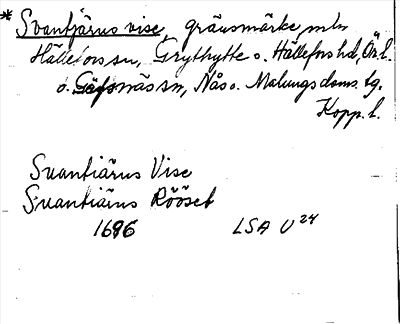 * Svantjärus vise, gränsmärke mln
Hällefors sn, Grythytte o. Hällefors hd, Ör. l.
o. Säfsnäs sn, Nås o. Malungs doms. lg.
Kopp. l.
Suantiärus Vise
Suantiärus Rööset
1696 LSA U 24